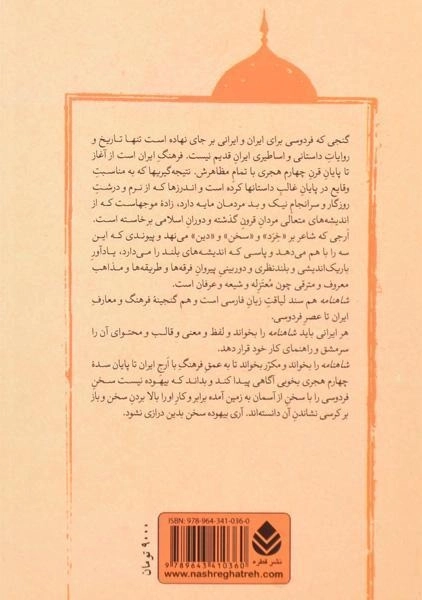 گنجی که فردوسی برای ایران و ایرانی بر جای نهاده است تنها تاریخ و
روایات داستانی و اساطیری ایرانِ قدیم نیست. فرهنگِ ایران است از آغاز
تا پایان قرنِ چهارم هجری با تمامِ مظاهرش. نتیجه‌گیریها که به مناسبتِ
وقایع در پایان غالبِ داستانها کرده است و اندرزها که از نرم و درشتِ
روزگار و سرانجامِ نیک و بدِ مردمان مایه دارد، زادهٔ موجهاست که از
اندیشه‌های متعالی مردانِ قرونِ گذشته و دورانِ اسلامی برخاسته است.
اَرجی که شاعر بر «خِرَد» و «سخن» و «دین» می‌نهد و پیوندی که این
سه را با هم می‌دهد و پاسی که اندیشه‌های بلند را می‌دارد، یادآورِ
باریک‌اندیشی و بلندنظری و دوربینیِ پیروانِ فرقه‌ها و طریقه‌ها و مذاهب
معروف و مترقی چون مُعتَزِله و شیعه و عرفان است.
شاهنامه هم سند لیاقتِ زبانِ فارسی است و هم گنجینهٔ فرهنگ و معارفِ
ایران تا عصرِ فردوسی.
هر ایرانی باید شاهنامه را بخواند و لفظ و معنی و قالب و محتوای آن را
سرمشق و راهنمای کار خود قرار دهد.
شاهنامه را بخواند و مکرّر بخواند تا به عمقِ فرهنگِ با ارجِ ایران تا پایان سدهٔ
چهارم هجری بخوبی آگاهی پیدا کند و بداند که بیهوده نیست سخنِ
فردوسی را با سخنِ از آسمان به زمین آمده برابر و کارِ او را بالا بردنِ سخن و باز
بر کرسی نشاندنِ آن دانسته‌اند. آری بیهوده سخن بدین درازی نشود.
ISBN: 978-964-341-036-0
9 789643 410360
www.nashreghatreh.com
نشر قطره
۹۰۰۰ تومان